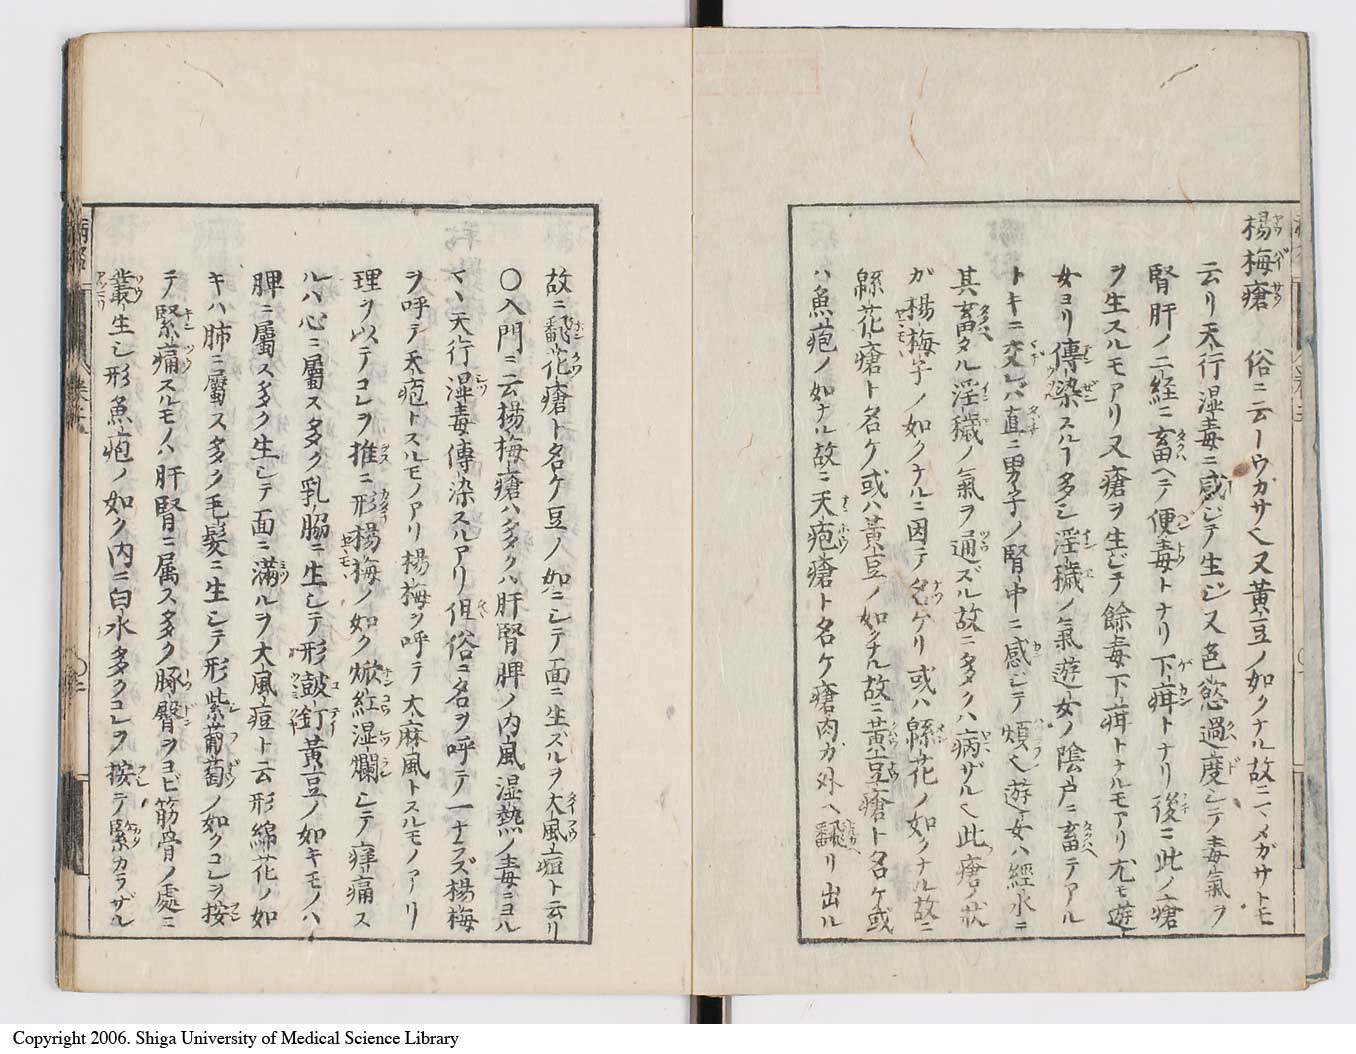 楊梅瘡 俗ニ云トウガサ也又黄豆ノ如クナル故ニマメガサトモ
云リ天行湿毒ニ感ジテ生ジ又色慾過度シテ毒氣ヲ
腎肝ノ二経ニ畜ヘテ便毒トナリ下疳トナリ後ニ此ノ瘡
ヲ生スルモアリ又瘡ヲ生ジテ餘毒下疳トナルモアリ尤モ遊
女ヨリ傳染スルヿ多シ淫穢ノ氣遊女ノ陰戸ニ畜テアル
トキニ交レバ直ニ男子ノ腎中ニ感ジテ煩也遊女ハ經水ニ
其畜タル淫穢ノ氣ヲ通ズル故ニ多クハ病ザル也此瘡ノ状
ガ楊梅子ノ如クナルニ因テ名ケリ或ハ緜花ノ如クナル故ニ
緜花瘡ト名ケ或ハ黄豆ノ如クナル故ニ黄豆瘡ト名ケ或
ハ魚疱ノ如ナル故ニ天疱瘡ト名ケ瘡肉ガ外ヘ飜リ出ル
故ニ飜花瘡ト名ケ豆ノ如ニシテ面ニ生ズルヲ大風痘ト云リ
〇入門ニ云楊梅瘡ハ多クハ肝腎脾ノ内風湿熱ノ毒ニヨル
天行湿毒傳染スルアリ但俗ニ名ヲ呼テ一ナラズ楊梅
ヲ呼テ天疱トスルモノアリ楊梅ヲ呼テ大麻風トスルモノアリ
理ヲ以テコレヲ推ニ形楊梅ノ如ク焮紅湿爛シテ痒痛ス
ルハ心ニ屬ス多ク乳脇ニ生シテ形皷釘黄豆ノ如キモノハ
脾ニ屬ス多ク生シテ面ニ滿ルヲ大風痘ト云形綿花ノ如
キハ肺ニ屬ス多ク毛髪ニ生シテ形紫葡萄ノ如クコレヲ按
テ緊痛スルモノハ肝腎ニ属ス多ク豚臀ヲヨビ筋骨ノ處ニ
叢生シ形魚疱ノ如ク内ニ白水多クコレヲ按テ緊カラザル
Copyright 2006. Shiga University of Medical Science Library